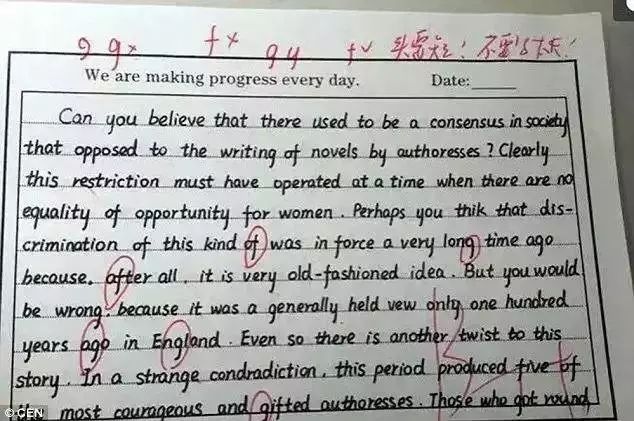 g g× f× g y f✓ 头要短！不要写太长！
We are making progress every day. Date:
Can you believe that there used to be a consensus in society
that opposed to the writing of novels by authoresses ? Clearly
this restriction must have operated at a time when there are no
equality of opportunity for women . Perhaps you thik that dis-
crimination of this kind of was in force a very long time ago
because, after all , it is very old-fashioned idea . But you would
be wrong, because it was a generally held vew only one hundred
years ago in England . Even so there is another twist to this
story . In a strange condradiction , this period produced five of
the most courageous and gifted authoresses . Those who got round
© CEN